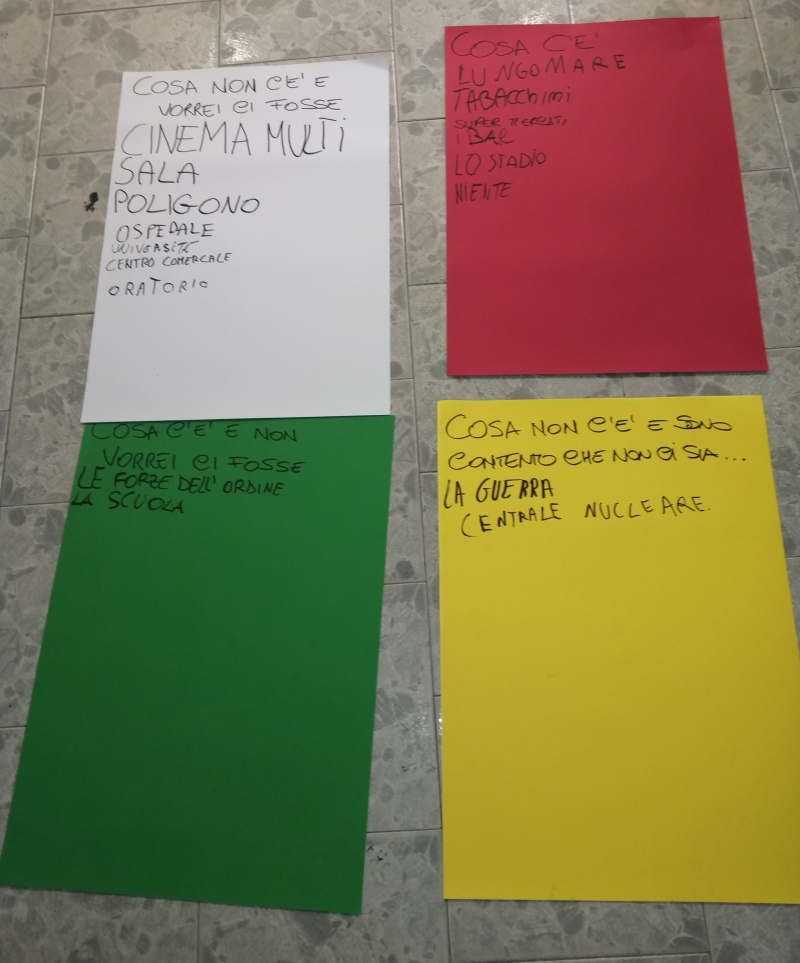 COSA NON C'E' E
VORREI CI FOSSE
CINEMA MULTI
SALA
POLIGONO
OSPEDALE
UNIVERSITÀ
CENTRO COMERCALE
ORATORIO
COSA C'E'
LUNGOMARE
TABACChini
SUPER MERCATI,
I BAR
LO STADIO
NIENTE
COSA C'E' E NON
VORREI CI FOSSE
LE FORZE DELL'ORDINE
LA SCUOLA
COSA NON C'E' E SONO
CONTENTO CHE NON CI SIA...
LA GUERRA
CENTRALE NUCLEARE.